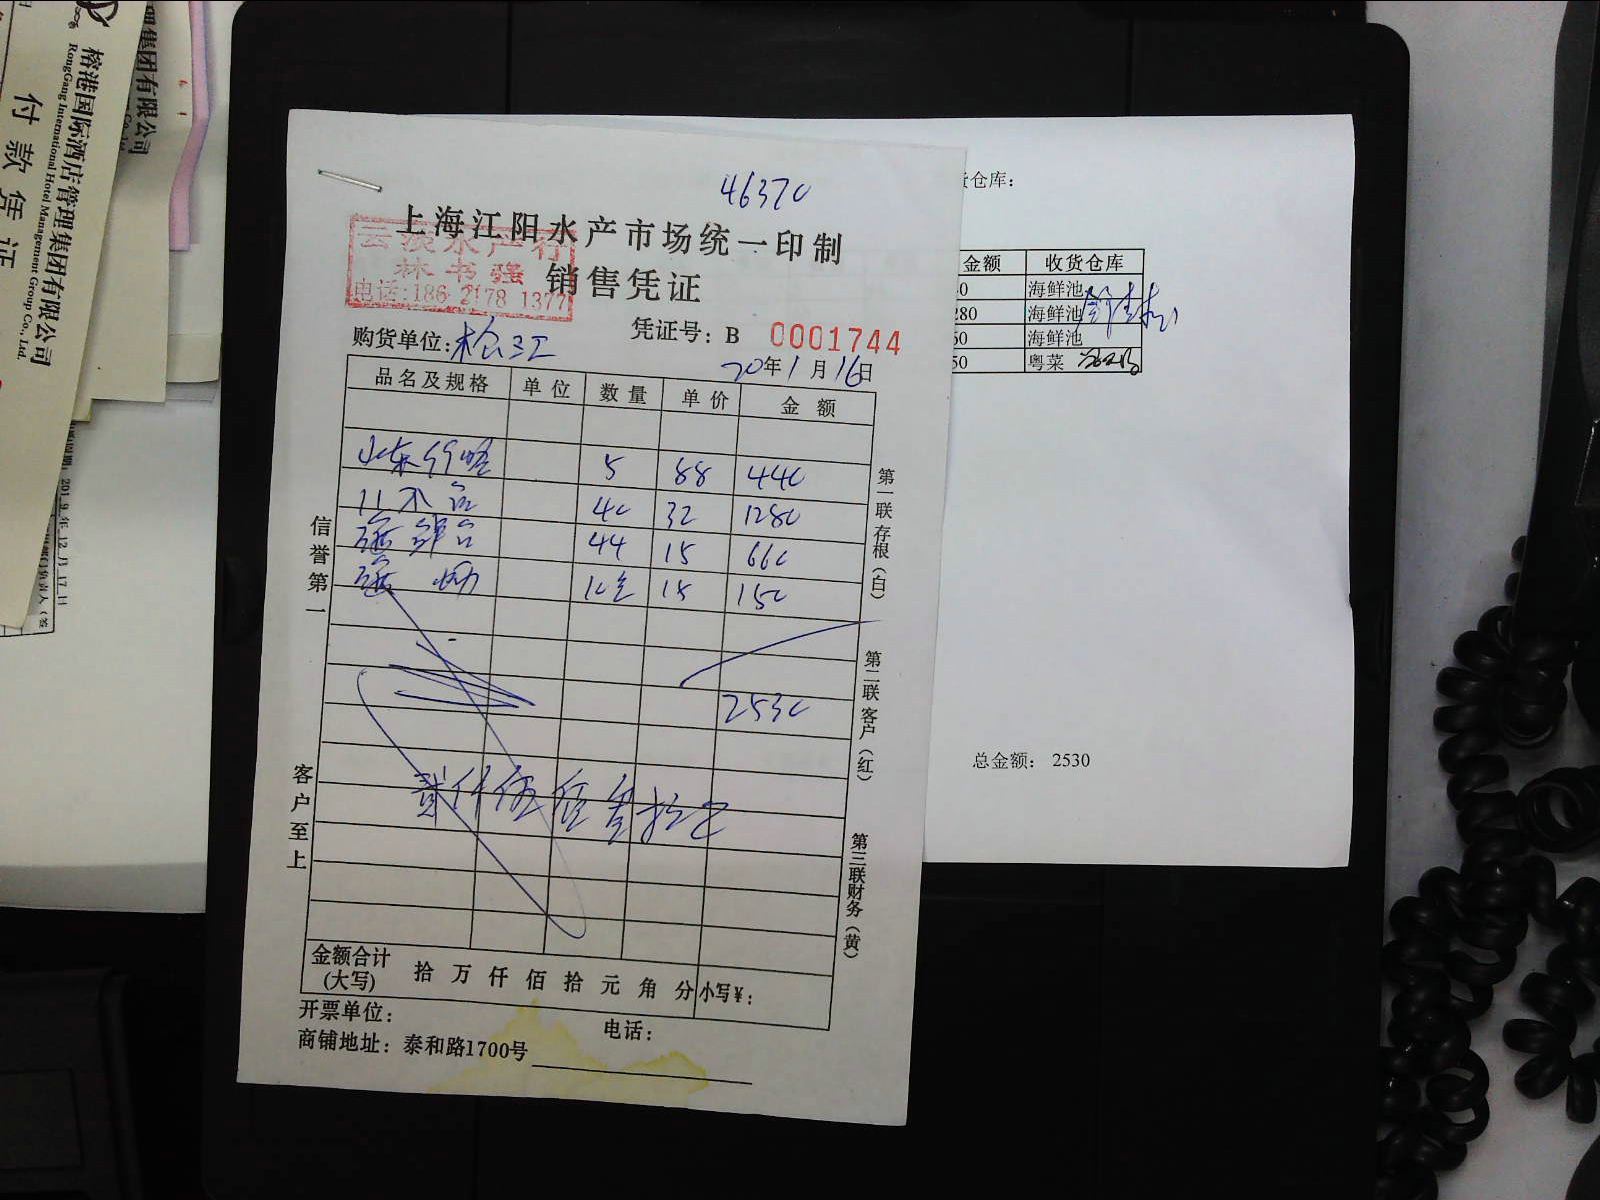 46370
上海江阳水产市场统一印制
销售凭证
云波水产行
林书强
电话:186 2178 1377
购货单位:松江
凭证号：B 0001744
20年1月16日
品名及规格 单位 数量 单价 金额
山东 5 88 440
40 32 1280
44 15 660
15 150
2530
贰仟伍佰叁拾元
金额合计(大写) 拾万仟佰拾元角分 小写¥：
开票单位：
电话：
商铺地址：泰和路1700号
信誉第一
客户至上
第一联存根(白)
第二联客户(红)
第三联财务(黄)
货仓库：
金额 收货仓库
海鲜池
280 海鲜池
海鲜池
50 粤菜
总金额： 2530
榕港国际酒店管理集团有限公司
RongGang International Hotel Management Group Co., Ltd.
付款凭证
集团有限公司
2019年12月17日